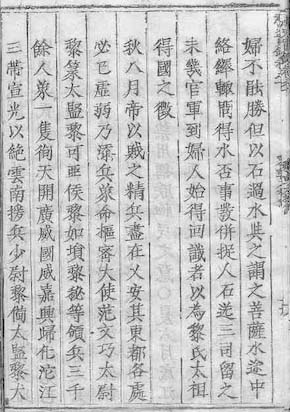 婦不能勝但以石過水共之謂之菩薩水遊中
絡繹轆轤得水否事發併捉人石送三司留之
未幾官軍到婦人始得回識者以為黎氏太祖
得國之徵
秋八月帝以賊之精兵盡在乂安其東都各處
必已虛弱乃添兵象命樞密大使范文巧太尉
黎篆太監黎可亜侯黎如墳黎秘等領兵三千
餘人象一隻徇天開廣威國威嘉興歸化沱江
三帶宣光以絕雲南援兵少尉黎備太監黎大